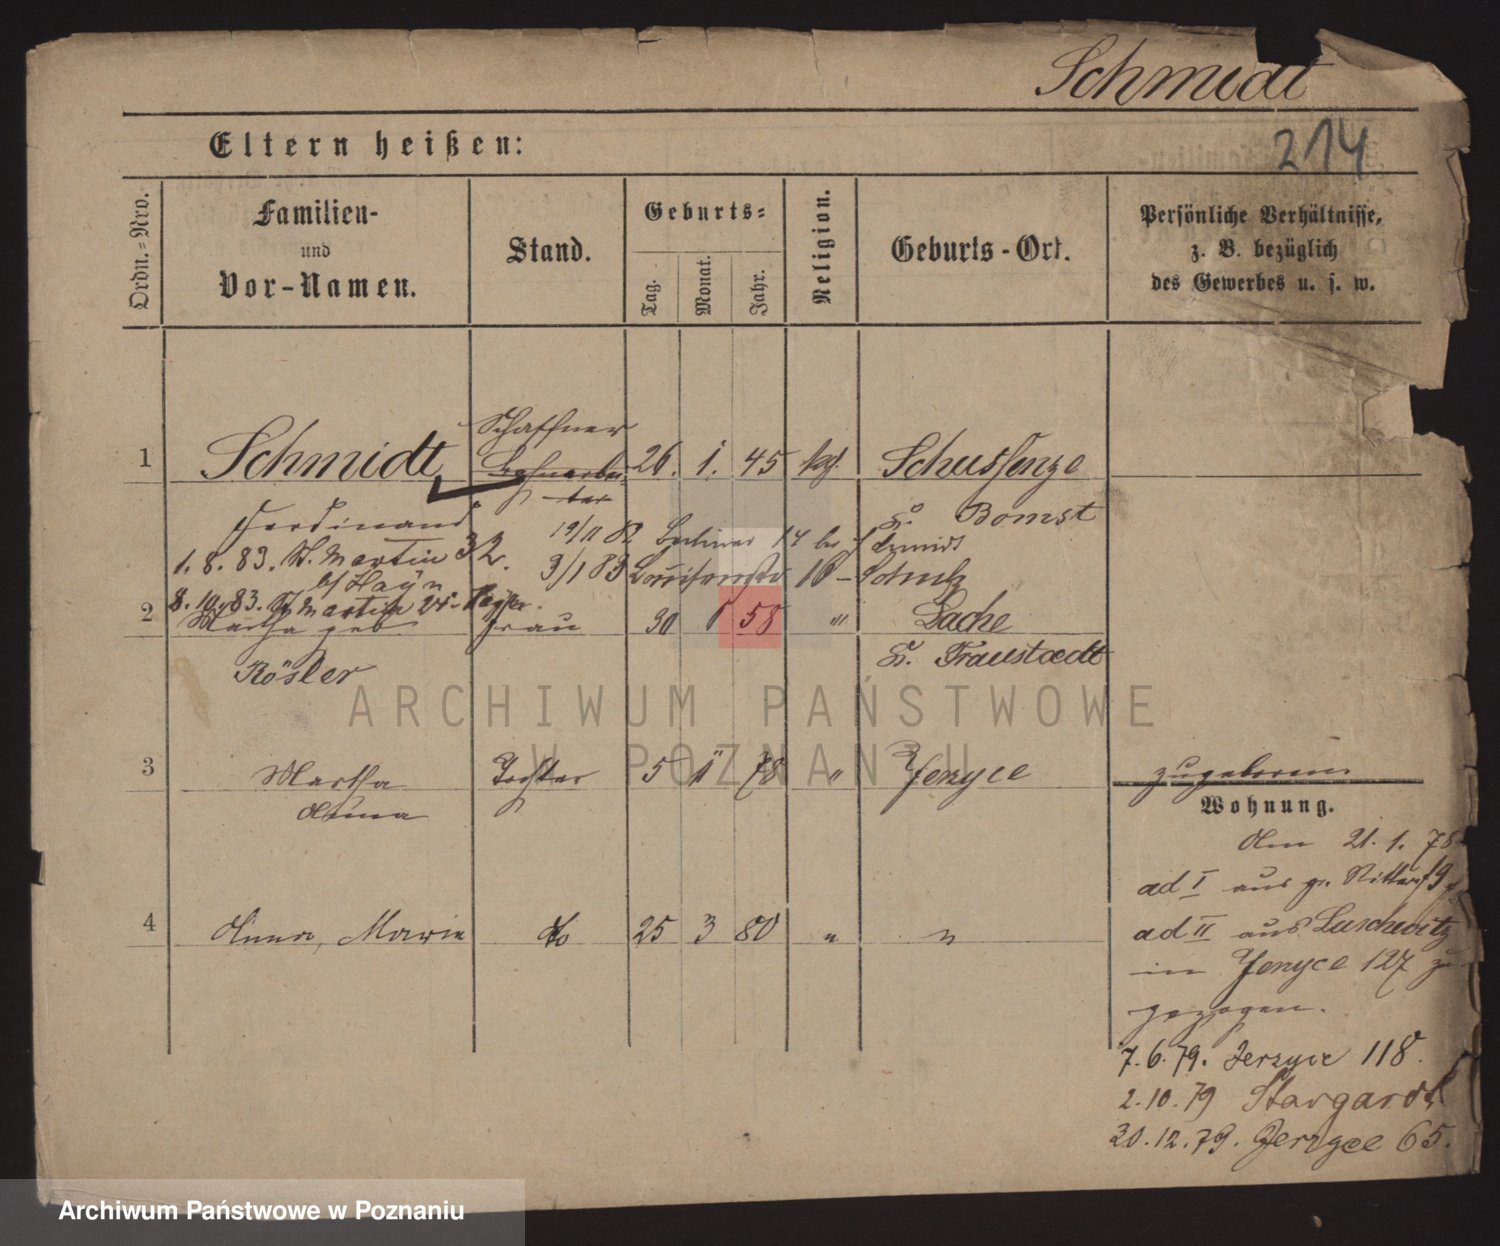 Schmidt
214
Eltern heißen:
Ordn.=Nro.
Familien-
und
Vor-Namen.
Stand.
Geburts=
Tag.
Monat.
Jahr.
Religion.
Geburts-Ort.
Persönliche Verhältnisse,
z. B. bezüglich
des Gewerbes u. s. w.
Schaffner
1 Schmidt Bahnarbei- 26. 1. 45 kgl. Schussenze
ter
Ferdinand Kr. Bomst
19/11 82 Berliner 14 bei Schmidt
1. 8. 83. St. Martin 32. 3/1 83 16 - Schulz
bei Hayn
8. 10. 83. St. Martin 25.
2 Martha geb Frau 30 58 " Lache
Rösler Kr. Fraustadt
3 Martha Tochter 5 11 78 " Jerzyce
Anna
4 Anna, Marie do 25 3 80 " "
zugeboren
Wohnung.
Am 21. 1. 78
ad I aus gr. Ritterst 9
ad II aus Luschwitz
in Jerzyce 127 zu
gezogen.
7. 6. 79. Jerzyce 118.
2. 10. 79 Stargardt
30. 12. 79. Jerzyce 65.
ARCHIWUM PAŃSTWOWE
W POZNANIU
Archiwum Państwowe w Poznaniu